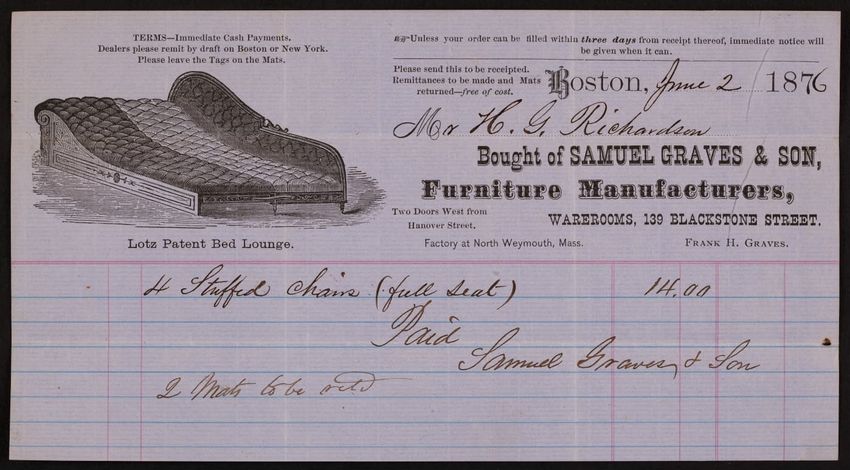 TERMS—Immediate Cash Payments.
Dealers please remit by draft on Boston or New York.
Please leave the Tags on the Mats.
Lotz Patent Bed Lounge.
☞Unless your order can be filled within three days from receipt thereof, immediate notice will
be given when it can.
Please send this to be receipted.
Remittances to be made and Mats
returned—free of cost.
Boston, June 2 1876
Mr H. G. Richardson
Bought of SAMUEL GRAVES & SON,
Furniture Manufacturers,
Two Doors West from
Hanover Street.
WAREROOMS, 139 BLACKSTONE STREET.
Factory at North Weymouth, Mass. FRANK H. GRAVES.
4 Stuffed Chairs (full seat) 14.00
Paid
Samuel Graves & Son
2 Mats to be retd